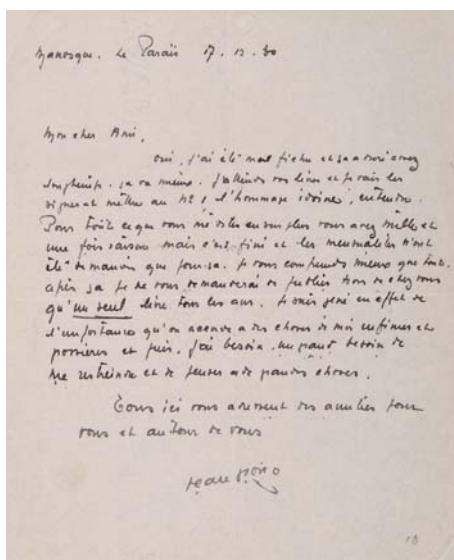 Manosque. Le Paraïs 17. 12. 30
Mon cher Ami,
oui, j'ai été mal fichu et ça a duré assez
longtemps. ça va mieux. J'attends vos livres et je vais les
signer et mettre au n° 1 l'hommage idoine, entendu.
Pour tout ce que vous me dites en sus plus vous avez mille et
une fois raison mais c'est fini et les n'ont
été que pour ça. Je vous comprends mieux que tout.
après ça je ne vous demanderai de publier hors de chez vous
qu'un seul livre tous les ans. Je suis gêné en effet de
l'importance qu'on accorde a des choses de moi infimes et
et puis, j'ai besoin, un grand besoin de
me restreindre et de penser a de grandes choses.
Tous ici vous adressent des amitiés pour
vous et autour de vous
Jean Giono
10